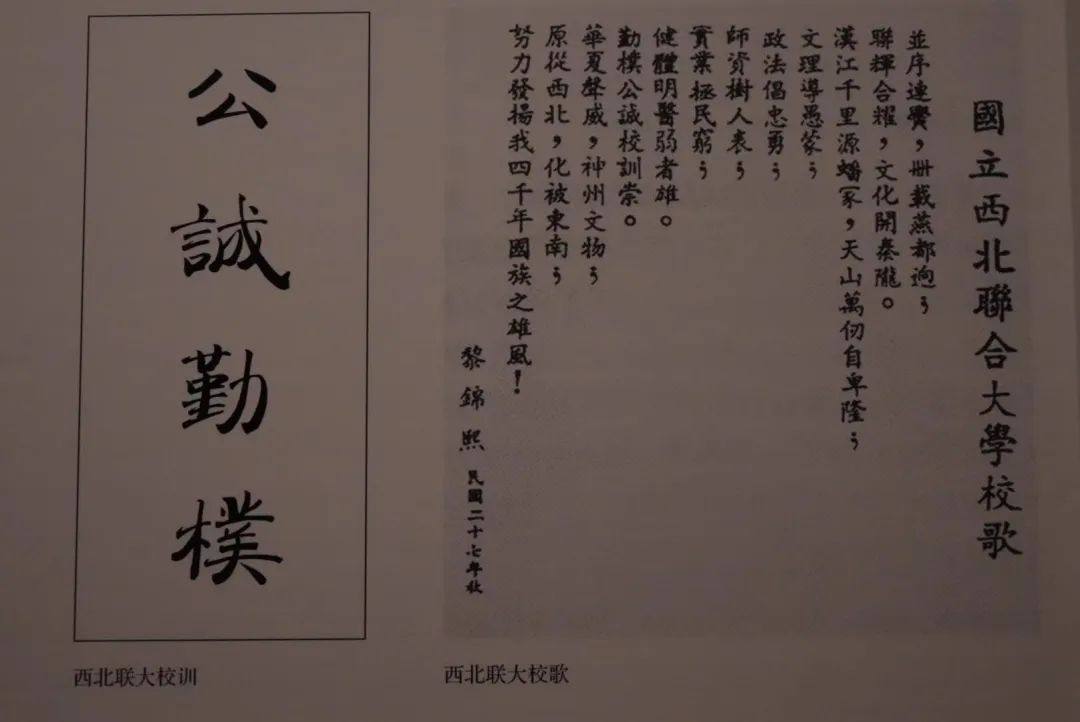 公誠勤樸
西北联大校训
國立西北聯合大學校歌
並序連黌，卌載燕都迥；
聯輝合耀，文化開秦隴。
漢江千里源蟠冢，天山萬仞自卑隆；
文理導愚蒙；
政法倡忠勇；
師資樹人表；
實業拯民窮；
健體明醫弱者雄。
勤樸公誠校訓崇。
華夏聲威，神州文物；
原從西北，化被東南；
努力發揚我四千年國族之雄風！
黎錦熙 民國二十七年秋
西北联大校歌